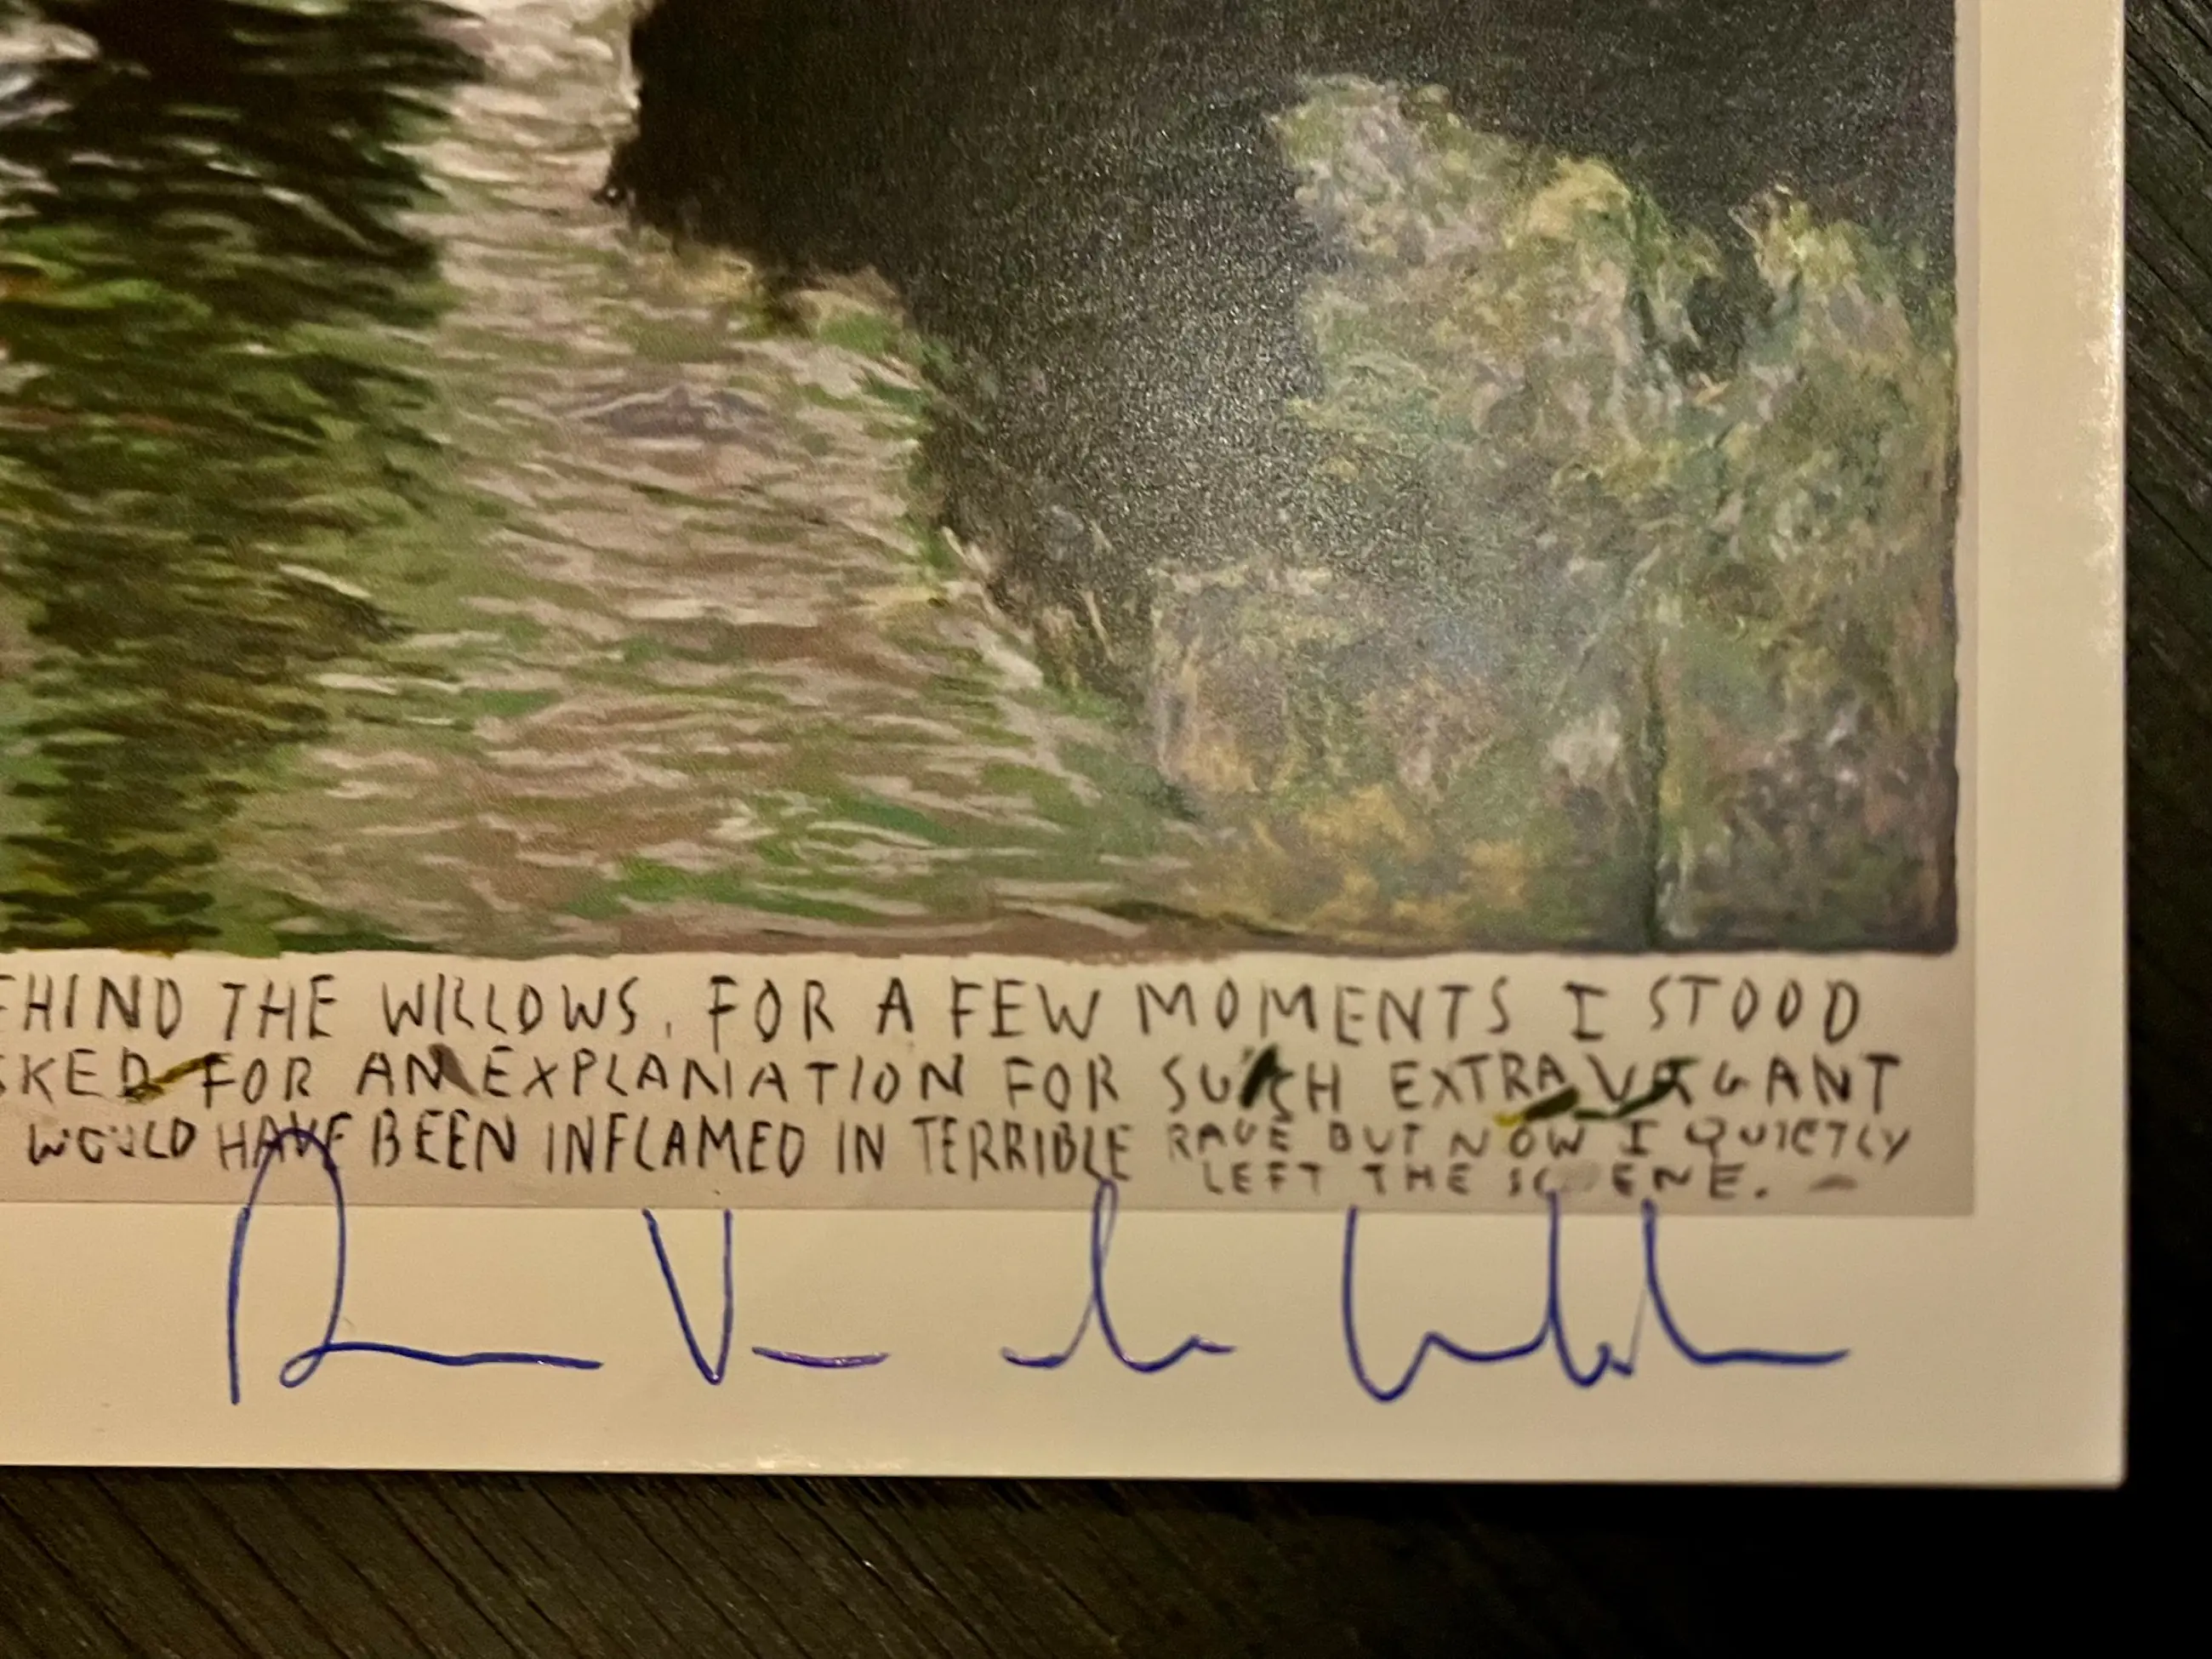 EHIND THE WILLOWS. FOR A FEW MOMENTS I STOOD
SKED FOR AN EXPLANATION FOR SUCH EXTRAVAGANT
WOULD HAVE BEEN INFLAMED IN TERRIBLE RAGE BUT NOW I QUIETLY
LEFT THE SCENE.